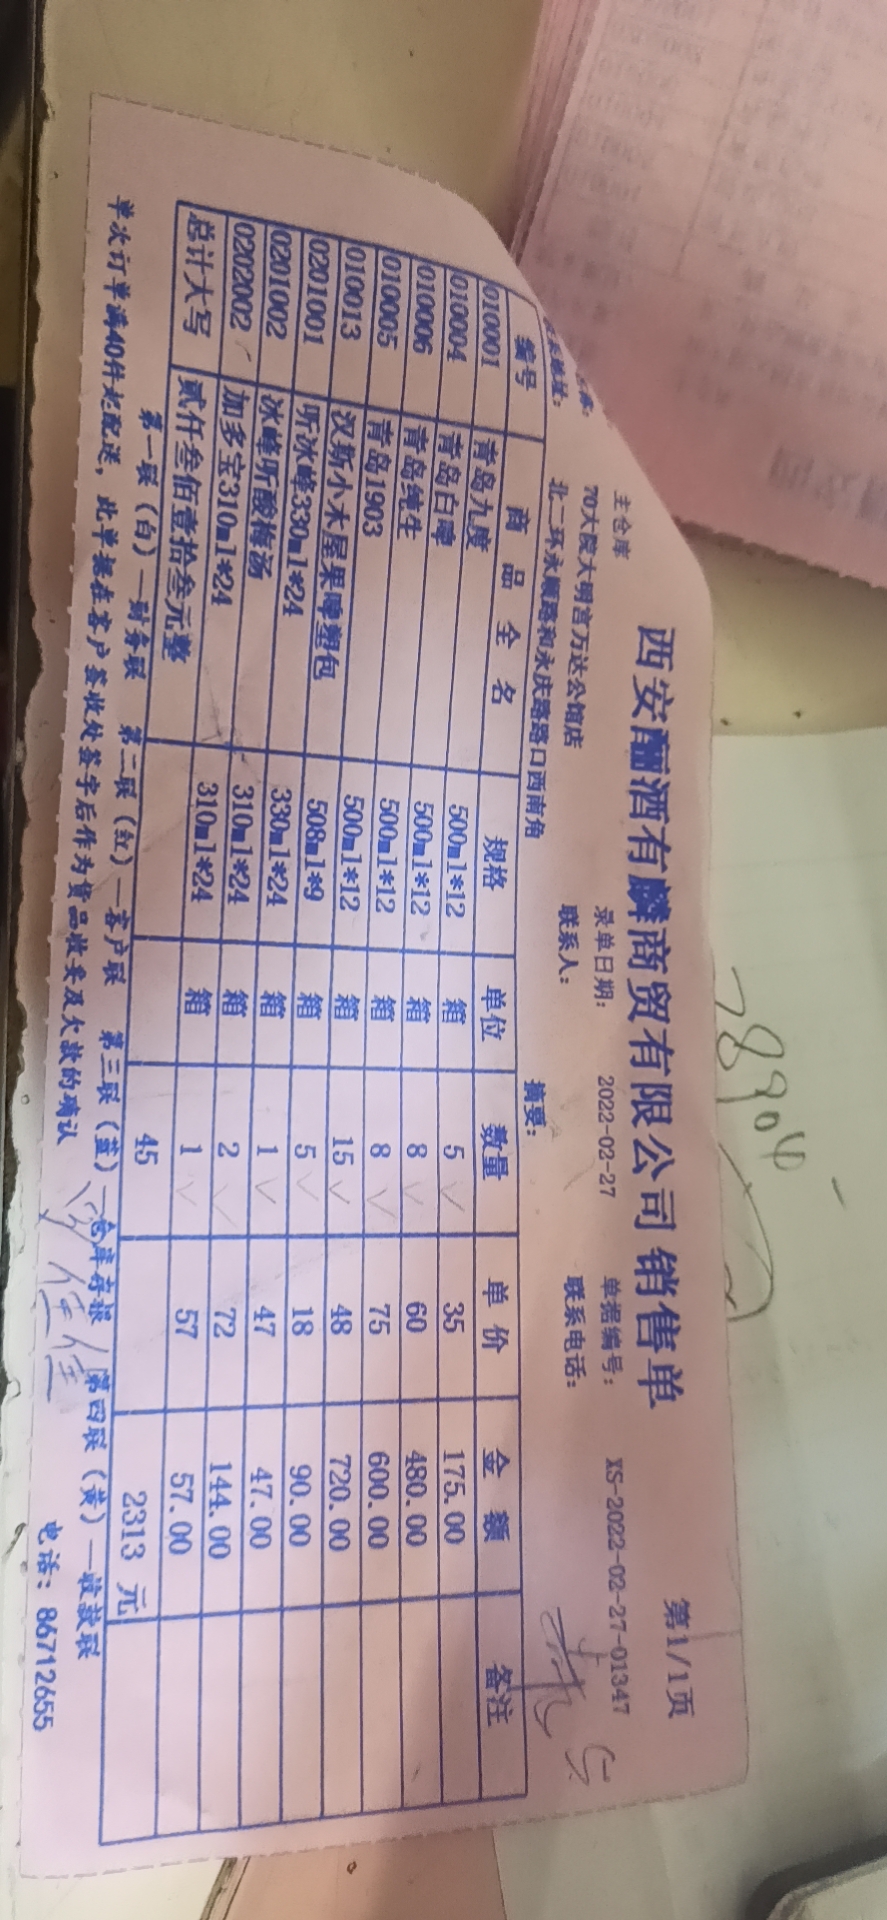 西安酾酒有麟商贸有限公司销售单
第1/1页
主仓库 录单日期: 2022-02-27 单据编号: XS-2022-02-27-01347
70大院大明宫万达公馆店 联系人: 联系电话:
北二环永顺路和永庆路路口西南角 摘要:
编号 商品全名 规格 单位 数量 单价 金额 备注
010001 青岛九度 500ml*12 箱 5 35 175.00
010004 青岛白啤 500ml*12 箱 8 60 480.00
010006 青岛纯生 500ml*12 箱 8 75 600.00
010005 青岛1903 500ml*12 箱 15 48 720.00
010013 汉斯小木屋果啤塑包 508ml*9 箱 5 18 90.00
0201001 听冰峰330ml*24 330ml*24 箱 1 47 47.00
0201002 冰峰听酸梅汤 310ml*24 箱 2 72 144.00
0202002 加多宝310ml*24 310ml*24 箱 1 57 57.00
总计大写 贰仟叁佰壹拾叁元整 45 2313 元
第一联(白)—财务联 第二联(红)—客户联 第三联(蓝)—仓库存根 第四联(黄)—收款联
单次订单满40件起配送, 此单据在客户签收处签字后作为货品收妥及欠款的确认 电话: 86712655